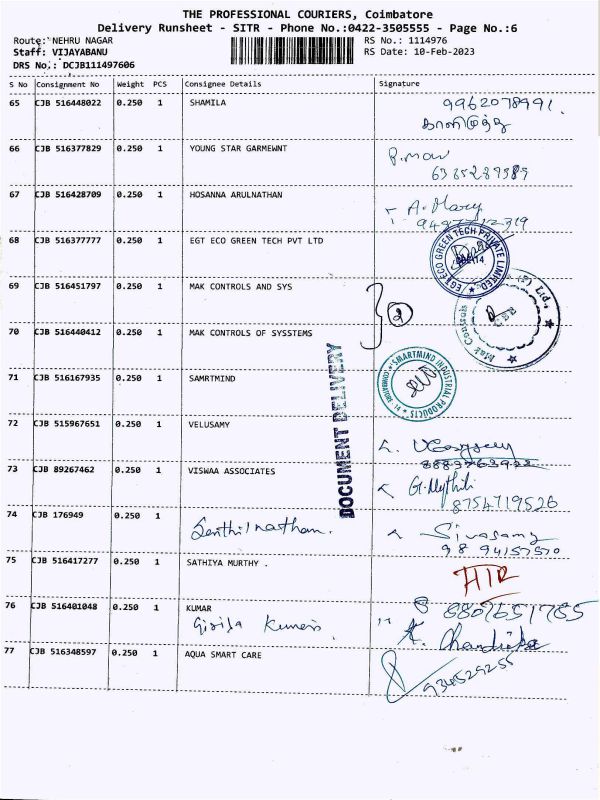 THE PROFESSIONAL COURIERS, Coimbatore
Delivery Runsheet - SITR - Phone No.:0422-3505555 - Page No.:6
Route: NEHRU NAGAR RS No.: 1114976
Staff: VIJAYABANU RS Date: 10-Feb-2023
DRS No.: DCJB111497606
S No Consignment No Weight PCS Consignee Details Signature
65 CJB 516448022 0.250 1 SHAMILA 9962078991.
66 CJB 516377829 0.250 1 YOUNG STAR GARMEWNT
6385289989
67 CJB 516428709 0.250 1 HOSANNA ARULNATHAN A. Mary
68 CJB 516377777 0.250 1 EGT ECO GREEN TECH PVT LTD
EGT ECO GREEN TECH PRIVATE LIMITED
69 CJB 516451797 0.250 1 MAK CONTROLS AND SYS 2
70 CJB 516440412 0.250 1 MAK CONTROLS OF SYSSTEMS
Mak Controls Ltd.,
71 CJB 516167935 0.250 1 SAMRTMIND
SMARTMIND INDUSTRIAL PRODUCTS
DOCUMENT DELIVERY
72 CJB 515967651 0.250 1 VELUSAMY
73 CJB 89267462 0.250 1 VISWAA ASSOCIATES G. Mythili
8754719526
74 CJB 176949 0.250 1 Senthilnathan. Sivasamy
98 94157570
75 CJB 516417277 0.250 1 SATHIYA MURTHY .
76 CJB 516401048 0.250 1 KUMAR
Kumar
77 CJB 516348597 0.250 1 AQUA SMART CARE
934529255